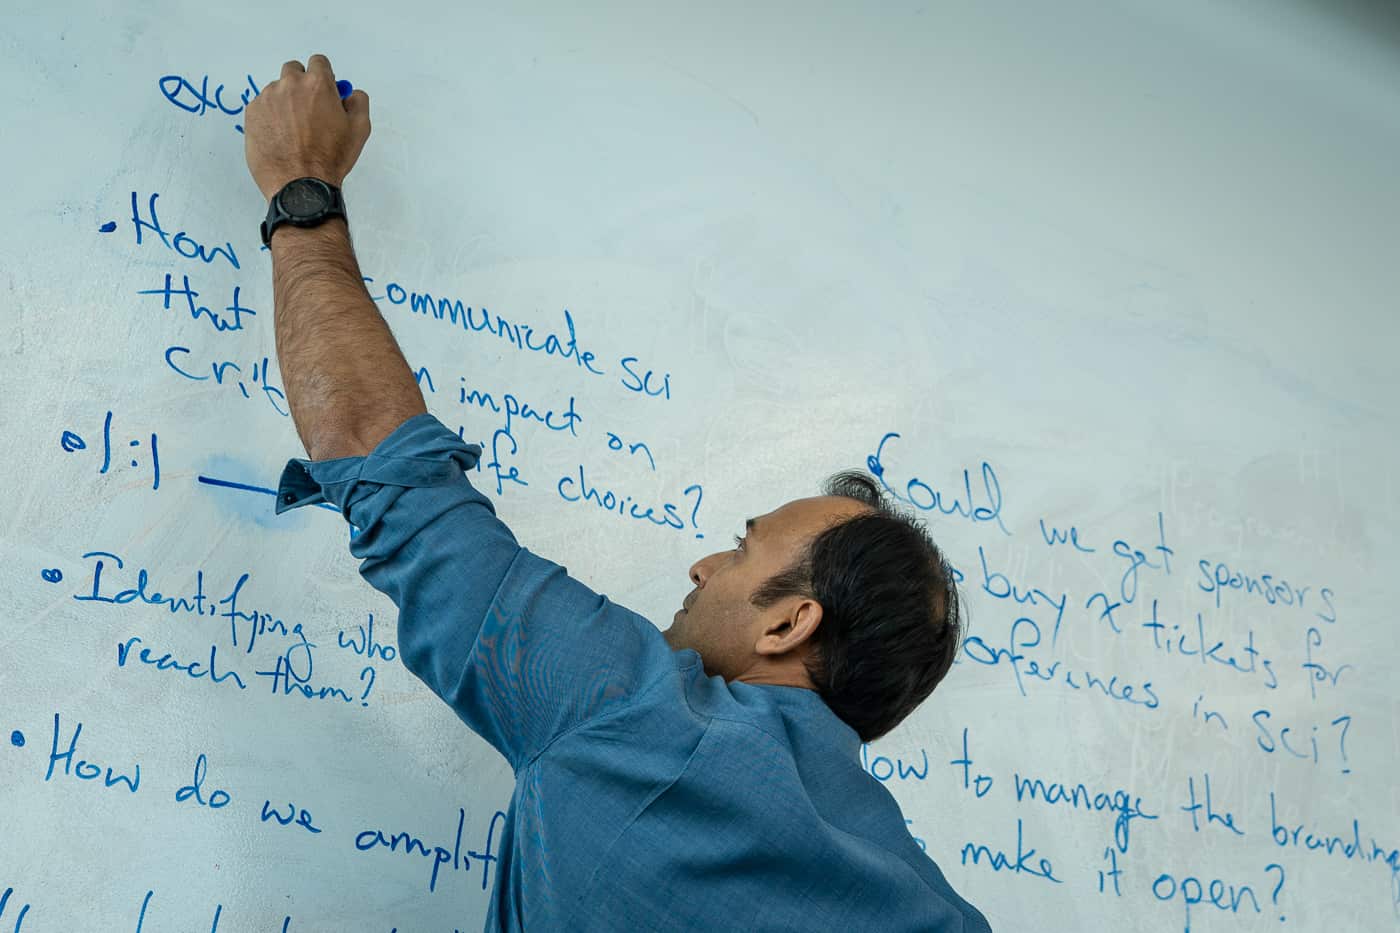 • How
communicate sci
that
impact on
life choices?
• 1:1
• Identifying who
reach them?
• How do we
• Could we get sponsors
buy x tickets for
conferences in sci?
to manage the branding
make it open?